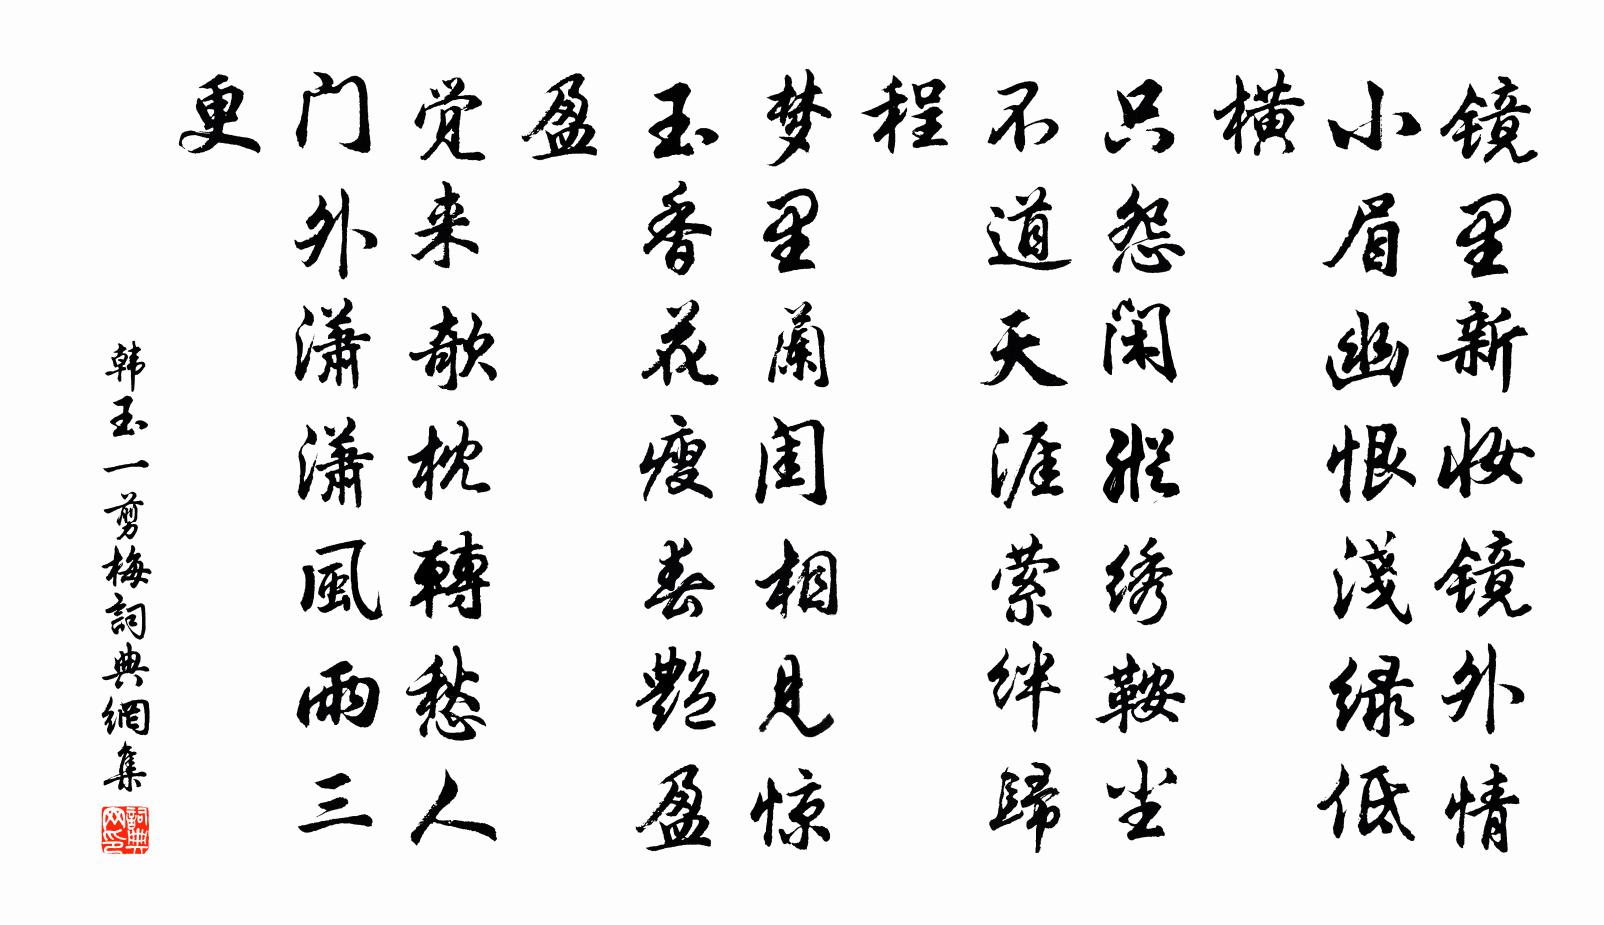 镜里新妆镜外情
小眉幽恨浅绿低
横
只怨闲縱绣鞍尘
不道天涯萦绊歸
程
梦里蘭闺相見惊
玉香花瘦春艷盈
盈
觉来欹枕轉愁人
门外潇潇風雨三
更
韩玉一剪梅詞典網集
詞典网印